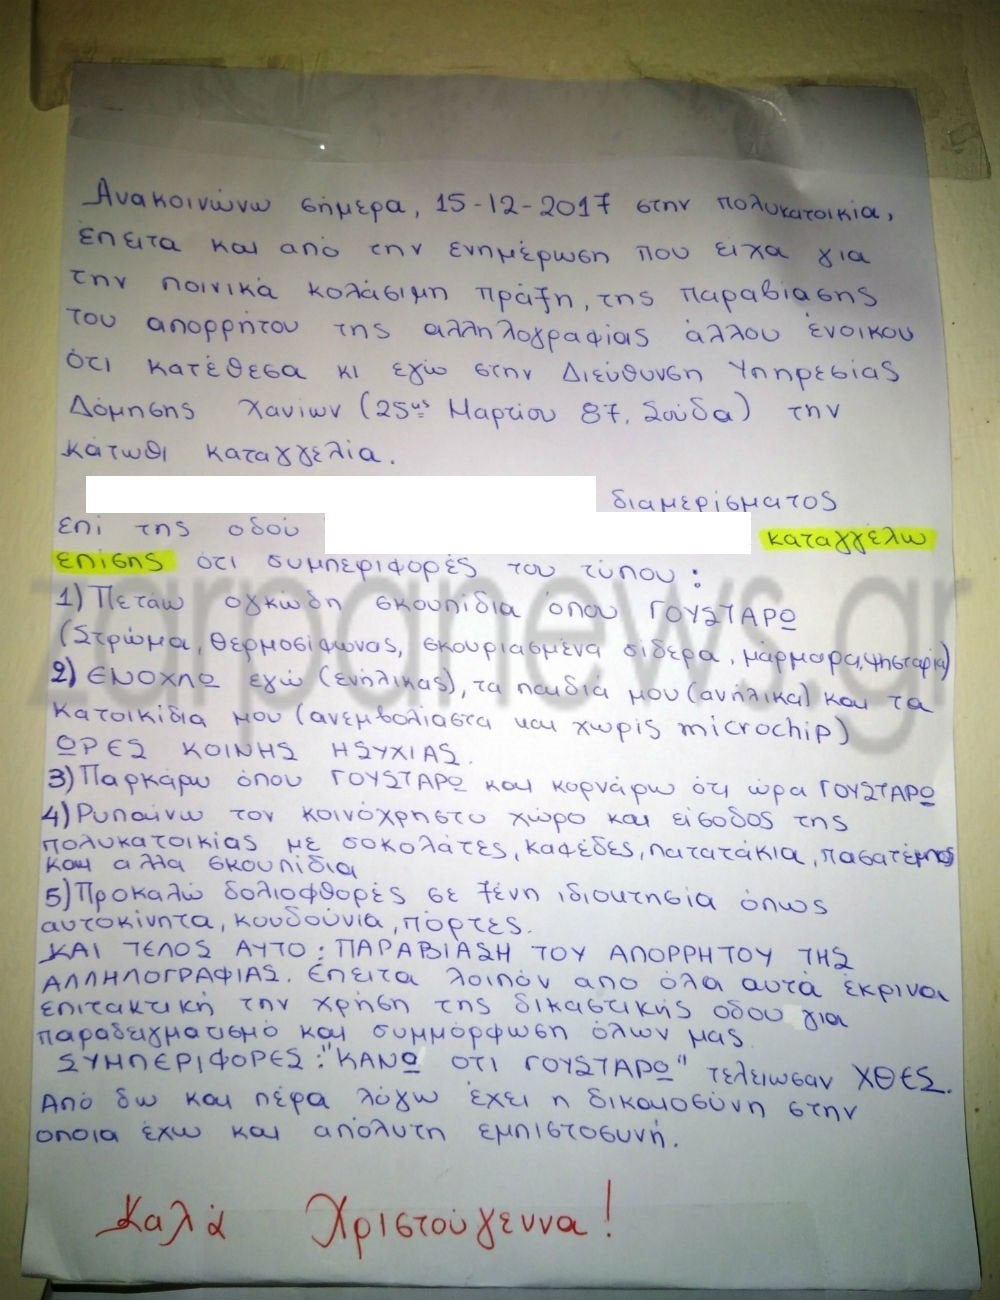 Ανακοινώνω σήμερα, 15-12-2017 στην πολυκατοικία,
έπειτα και από την ενημέρωση που είχα για
την ποινικά κολάσιμη πράξη, της παραβίασης
του απορρήτου της αλληλογραφίας άλλου ένοικου
ότι κατέθεσα κι εγώ στην Διεύθυνση Υπηρεσίας
Δόμησης Χανίων (25ης Μαρτίου 87, Σούδα) την
κάτωθι καταγγελία.
διαμερίσματος
επί της οδού καταγγέλω
επίσης ότι συμπεριφορές του τύπου :
zarpanews.gr
1) Πετάω ογκώδη σκουπίδια όπου ΓΟΥΣΤΑΡΩ
(Στρώμα, θερμοσίφωνας, σκουριασμένα σίδερα, μάρμαρα, ψησταριά)
2) ΕΝΟΧΛΩ εγώ (ενήλικας), τα παιδιά μου (ανήλικα) και τα
κατοικίδια μου (ανεμβολίαστα και χωρίς microchip)
ΩΡΕΣ ΚΟΙΝΗΣ ΗΣΥΧΙΑΣ.
3) Παρκάρω όπου ΓΟΥΣΤΑΡΩ και κορνάρω ότι ώρα ΓΟΥΣΤΑΡΩ
4) Ρυπαίνω τον κοινόχρηστο χώρο και είσοδος της
πολυκατοικίας με σοκολάτες, καφέδες, πατατάκια, πασατέμπος
και αλλα σκουπίδια
5) Προκαλώ δολιοφθορές σε ξένη ιδιοκτησία όπως
αυτοκίνητα, κουδούνια, πόρτες.
ΚΑΙ ΤΕΛΟΣ ΑΥΤΟ : ΠΑΡΑΒΙΑΣΗ ΤΟΥ ΑΠΟΡΡΗΤΟΥ ΤΗΣ
ΑΛΛΗΛΟΓΡΑΦΙΑΣ. Έπειτα λοιπόν απο όλα αυτά έκρινα
επιτακτική την χρήση της δικαστικής οδου για
παραδειγματισμό και συμμόρφωση όλων μας.
ΣΥΜΠΕΡΙΦΟΡΕΣ : "ΚΑΝΩ ΟΤΙ ΓΟΥΣΤΑΡΩ" τελειωσαν ΧΘΕΣ.
Από δω και πέρα λόγω έχει η δικαιοσύνη στην
οποια έχω και απόλυτη εμπιστοσυνή.
Καλά Χριστούγεννα!